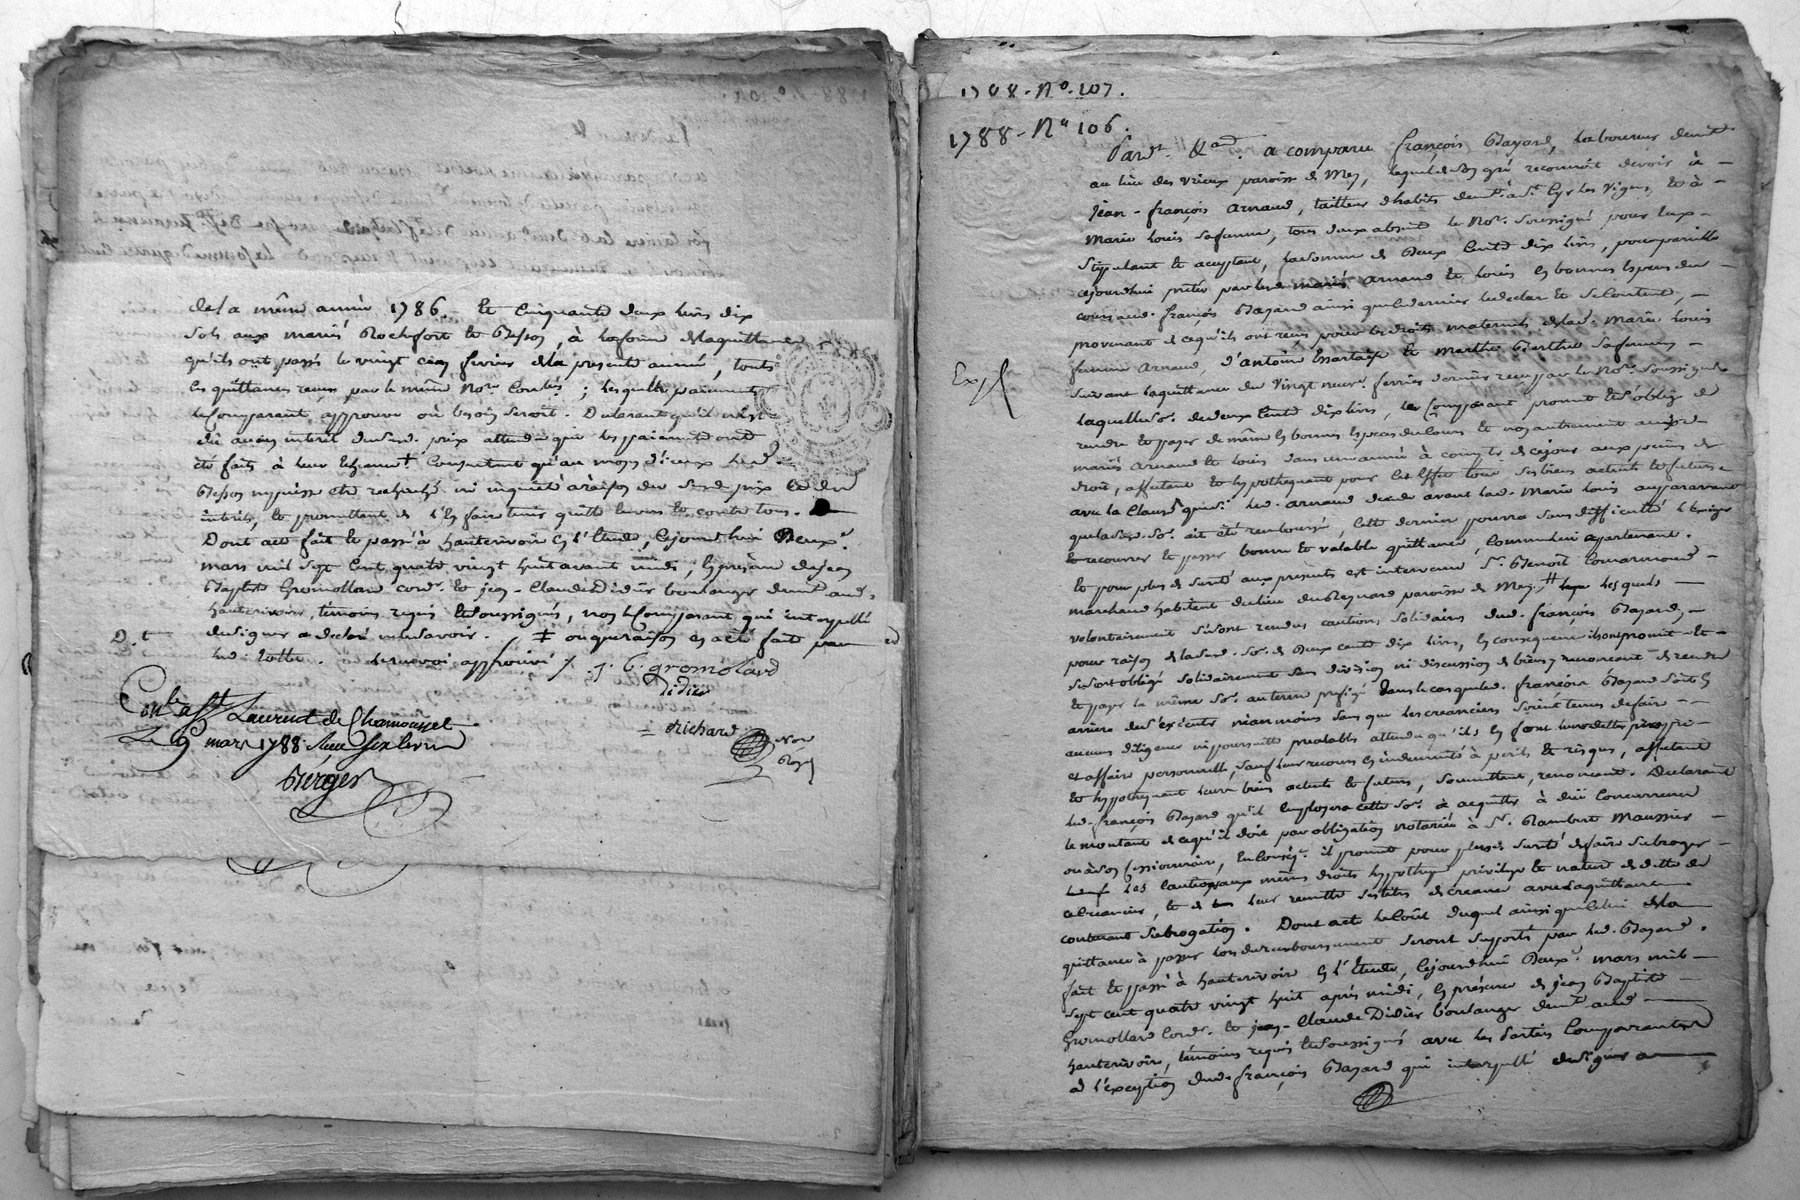 de la même année 1786. et cinquante deux livres dix
sols aux mariés Rochefort et Besson, à la forme de la quittance
qu'ils ont passé le vingt cinq fevrier de la presente année, toutes
les quittances reçues par le même No.re Comba ; lesquels paiements
le comparant approuve où besoin seroit. Declarant qu'il n'est
dû aucun interêt dud. prix attendu que les paiements ont
été faits à leur echeance ‡ Consentant qu'au moyen d'iceux led.
Besson ne puisse être recherché ni inquiété à raison du susd. prix et des
interêts, et promettant de l'en faire tenir quitte envers et contre tous.
Dont acte fait et passé à hauterivoire en l'Etude, cejourd'hui Deux.e
mars mil sept cent quatre vingt huit avant midi, en presence de jean
Baptiste Gromollard cord.r et jean-Claude Didier boulanger dem.t aud.
hauterivoire, témoins requis et soussignés, non le comparant qui interpellé
de signer a declaré ne le savoir. ‡ ou quoraison en a été fait pour
led. Le renvoi approuvé /. J. B. gromolard
Didier
Con.lé à S.t Laurent de Chamousset
Le 9 mars 1788. Reçu six livres
Berger
Richard
No.re
Roy.l
1788 - N.o 107.
1788 - N.o 106.
Pard.t &a.d a comparu françois Bayard, laboureur dem.t
au lieu des vrieux paroisse de Mey, lequel de son gré reconnoit devoir à
jean-françois arnaud, tailleur d'habits dem.t à S.t Cyr les Vignes, et à
Marie Louis sa femme, tous deux absents le No.re soussigné pour eux
stipulant et acceptant, la somme de deux cents dix livres, pour pareille
cejourd'hui prêtée par lesd. mariés arnaud et Louis en bonnes especes du
cours aud. françois Bayard ainsi que le dernier le declare et s'en contente,
provenant de ce qu'ils ont reçu pour les droits maternels de lad. Marie Louis
femme arnaud, d'antoine Essartaise et marthe Berthe sa femme,
Exp.
suivant la quittance du vingt neuv.e fevrier dernier reçue par le No.re soussigné
laquelle So.e de deux cents dix livres, le comparant promet et s'oblige de
rendre et payer de même en bonnes especes du cours et non autrement auxd.
mariés arnaud et Louis dans une année à compter de cejour aux peines de
droit, affectant et hypothequant pour cet effet tous ses biens actuels et futurs
avec la clause que si led. arnaud decede avant lad. Marie Louis auparavant
que lad. So.e ait été remboursée, cette derniere pourra sans difficulté l'exiger
et recouvrer et passer bonne et valable quittance, comme lui apartenant.
et pour plus de sureté aux presents est intervenu S.r Benoit
marchand habitant du lieu du Reynard paroisse de Mey, ‡ lesquels
volontairement se sont rendus cautions solidaires dud. françois Bayard,
pour raison de lad. So.e de deux cents dix livres, en consequence ils ont promis et
se sont obligé solidairement sans division ni discussion de biens y renonçant de rendre
et payer la même So.e au terme prefigé dans le cas que led. françois Bayard soit en
arriere de s'executer neanmoins sans que les creanciers soient tenus de faire
aucunes diligences ni poursuites prealables attendu qu'ils en font leur dette propre
et affaire personnelle, sauf leur recours et indemnité à perils et risques, affectant
et hypothequant leurs biens actuels et futurs, soumettant, renonçant. Declarant
led. françois Bayard qu'il employera cette So.e à acquitter à due concurrence
le montant de ce qu'il doit par obligation notariée à S.r Rambert Maussier
ou à son cessionnaire, En conseq.ce il promet pour plus de sureté de faire subroger
les cautions aux mêmes droits hypotheque privilege et nature de dette de
ce creancier, et de leur remettre ses titres de creance avec la quittance
contenant subrogation. Dont acte le coût duquel ainsi que celui de la
quittance à passer lors du remboursement seront supportés par led. Bayard.
fait et passé à hauterivoire en l'Etude, cejourd'hui Deux.e mars mil
sept cent quatre vingt huit après midi, en présence de jean Baptiste
Gromollard cord.r et jean-Claude Didier boulanger dem.t aud.
hauterivoire, témoins requis et soussignés avec les parties comparantes
à l'exception dud. françois Bayard qui interpellé de signer a